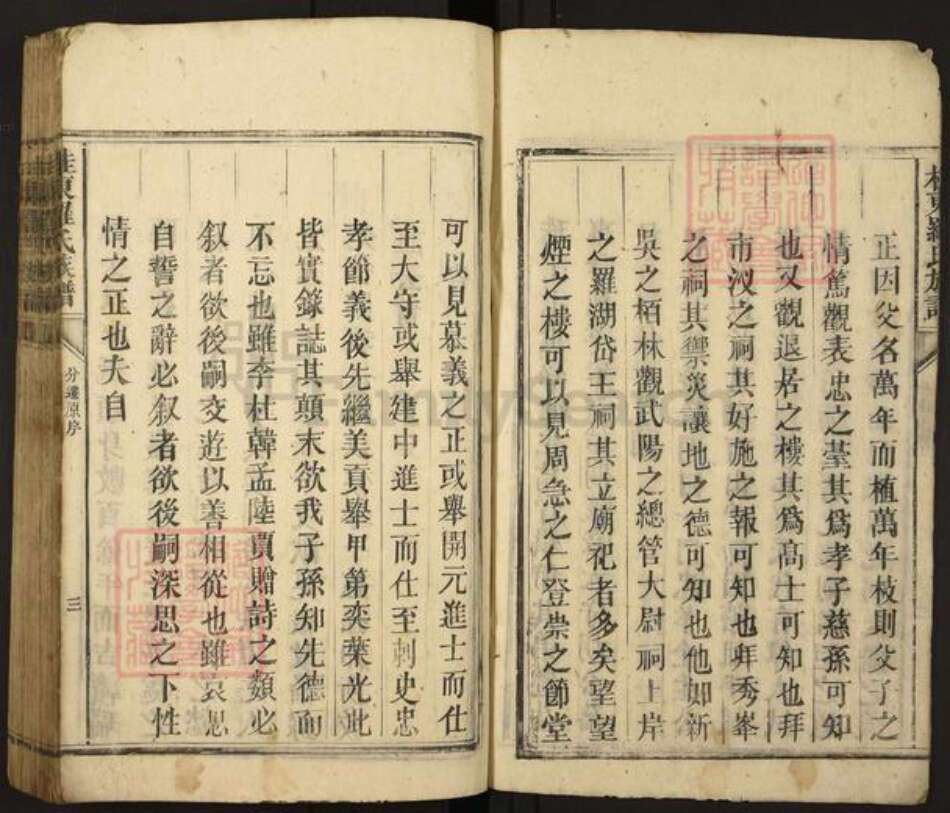 正因父名萬年而植萬年枝則父子之
情篤觀表忠之塋其爲孝子慈孫可知
也又觀退居之樓其爲高士可知也拜
市汊之祠其好施之報可知也拜秀峯
之祠其禦災讓地之德可知也他如新
吳之栢林觀武陽之總管大尉祠上岸
之羅湖岱王祠其立廟祀者多矣望望
煙之樓可以見周急之仁登崇之節堂
可以見慕義之正或舉開元進士而仕
至大守或舉建中進士而仕至刺史忠
孝節義後先繼美貢舉甲第奕葉光此
皆實錄誌其顛末欲我子孫知先德而
不忘也雖李杜韓孟陸賈贈詩之類必
叙者欲後嗣交遊以善相從也雖哀思
自誓之辭必叙者欲後嗣深思之下性
情之正也夫自
桂東羅氏族譜
分遷原序
三